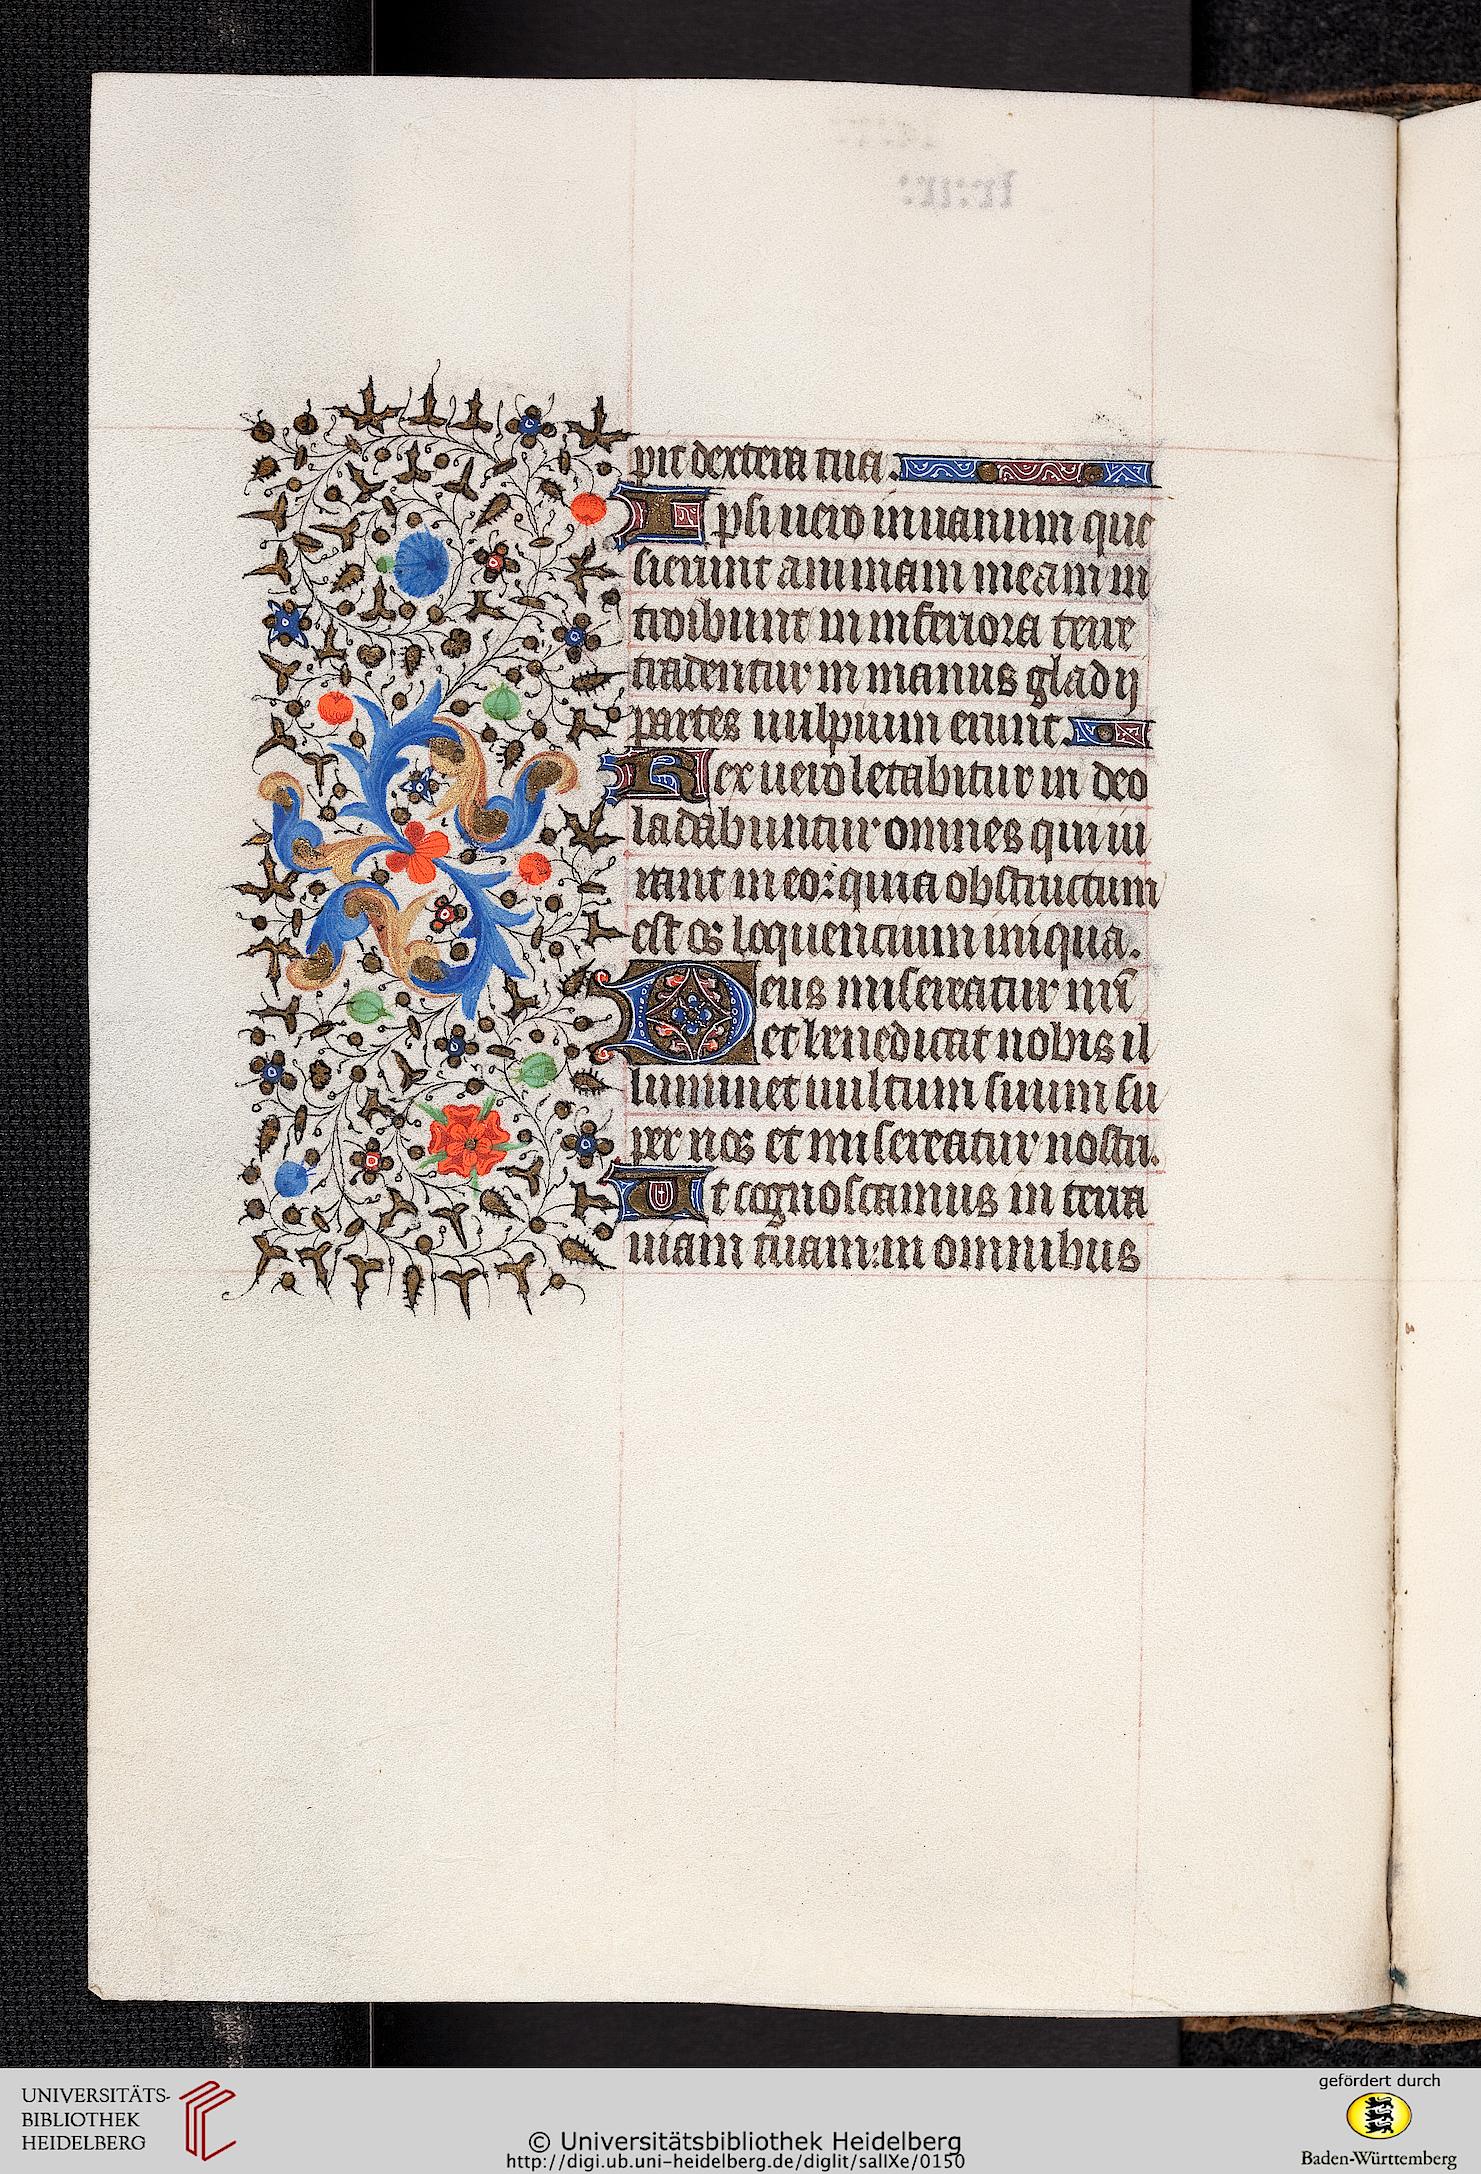 pit dextera tua.
Ipsi uero in uanum que
sierunt animam meam in
troibunt in inferiora terre
tradentur in manus gladij
partes uulpium erunt.
Rex uero letabitur in deo
laudabuntur omnes qui iu
rant in eo: quia obstructum
est os loquencium iniqua.
Deus misereatur nri
et benedicat nobis il
luminet uultum suum su
per nos et misereatur nostri.
Ut cognoscamus in terra
uiam tuam: in omnibus
UNIVERSITÄTS-
BIBLIOTHEK
HEIDELBERG
© Universitätsbibliothek Heidelberg
http://digi.ub.uni-heidelberg.de/diglit/salIXe/0150
gefördert durch
Baden-Württemberg